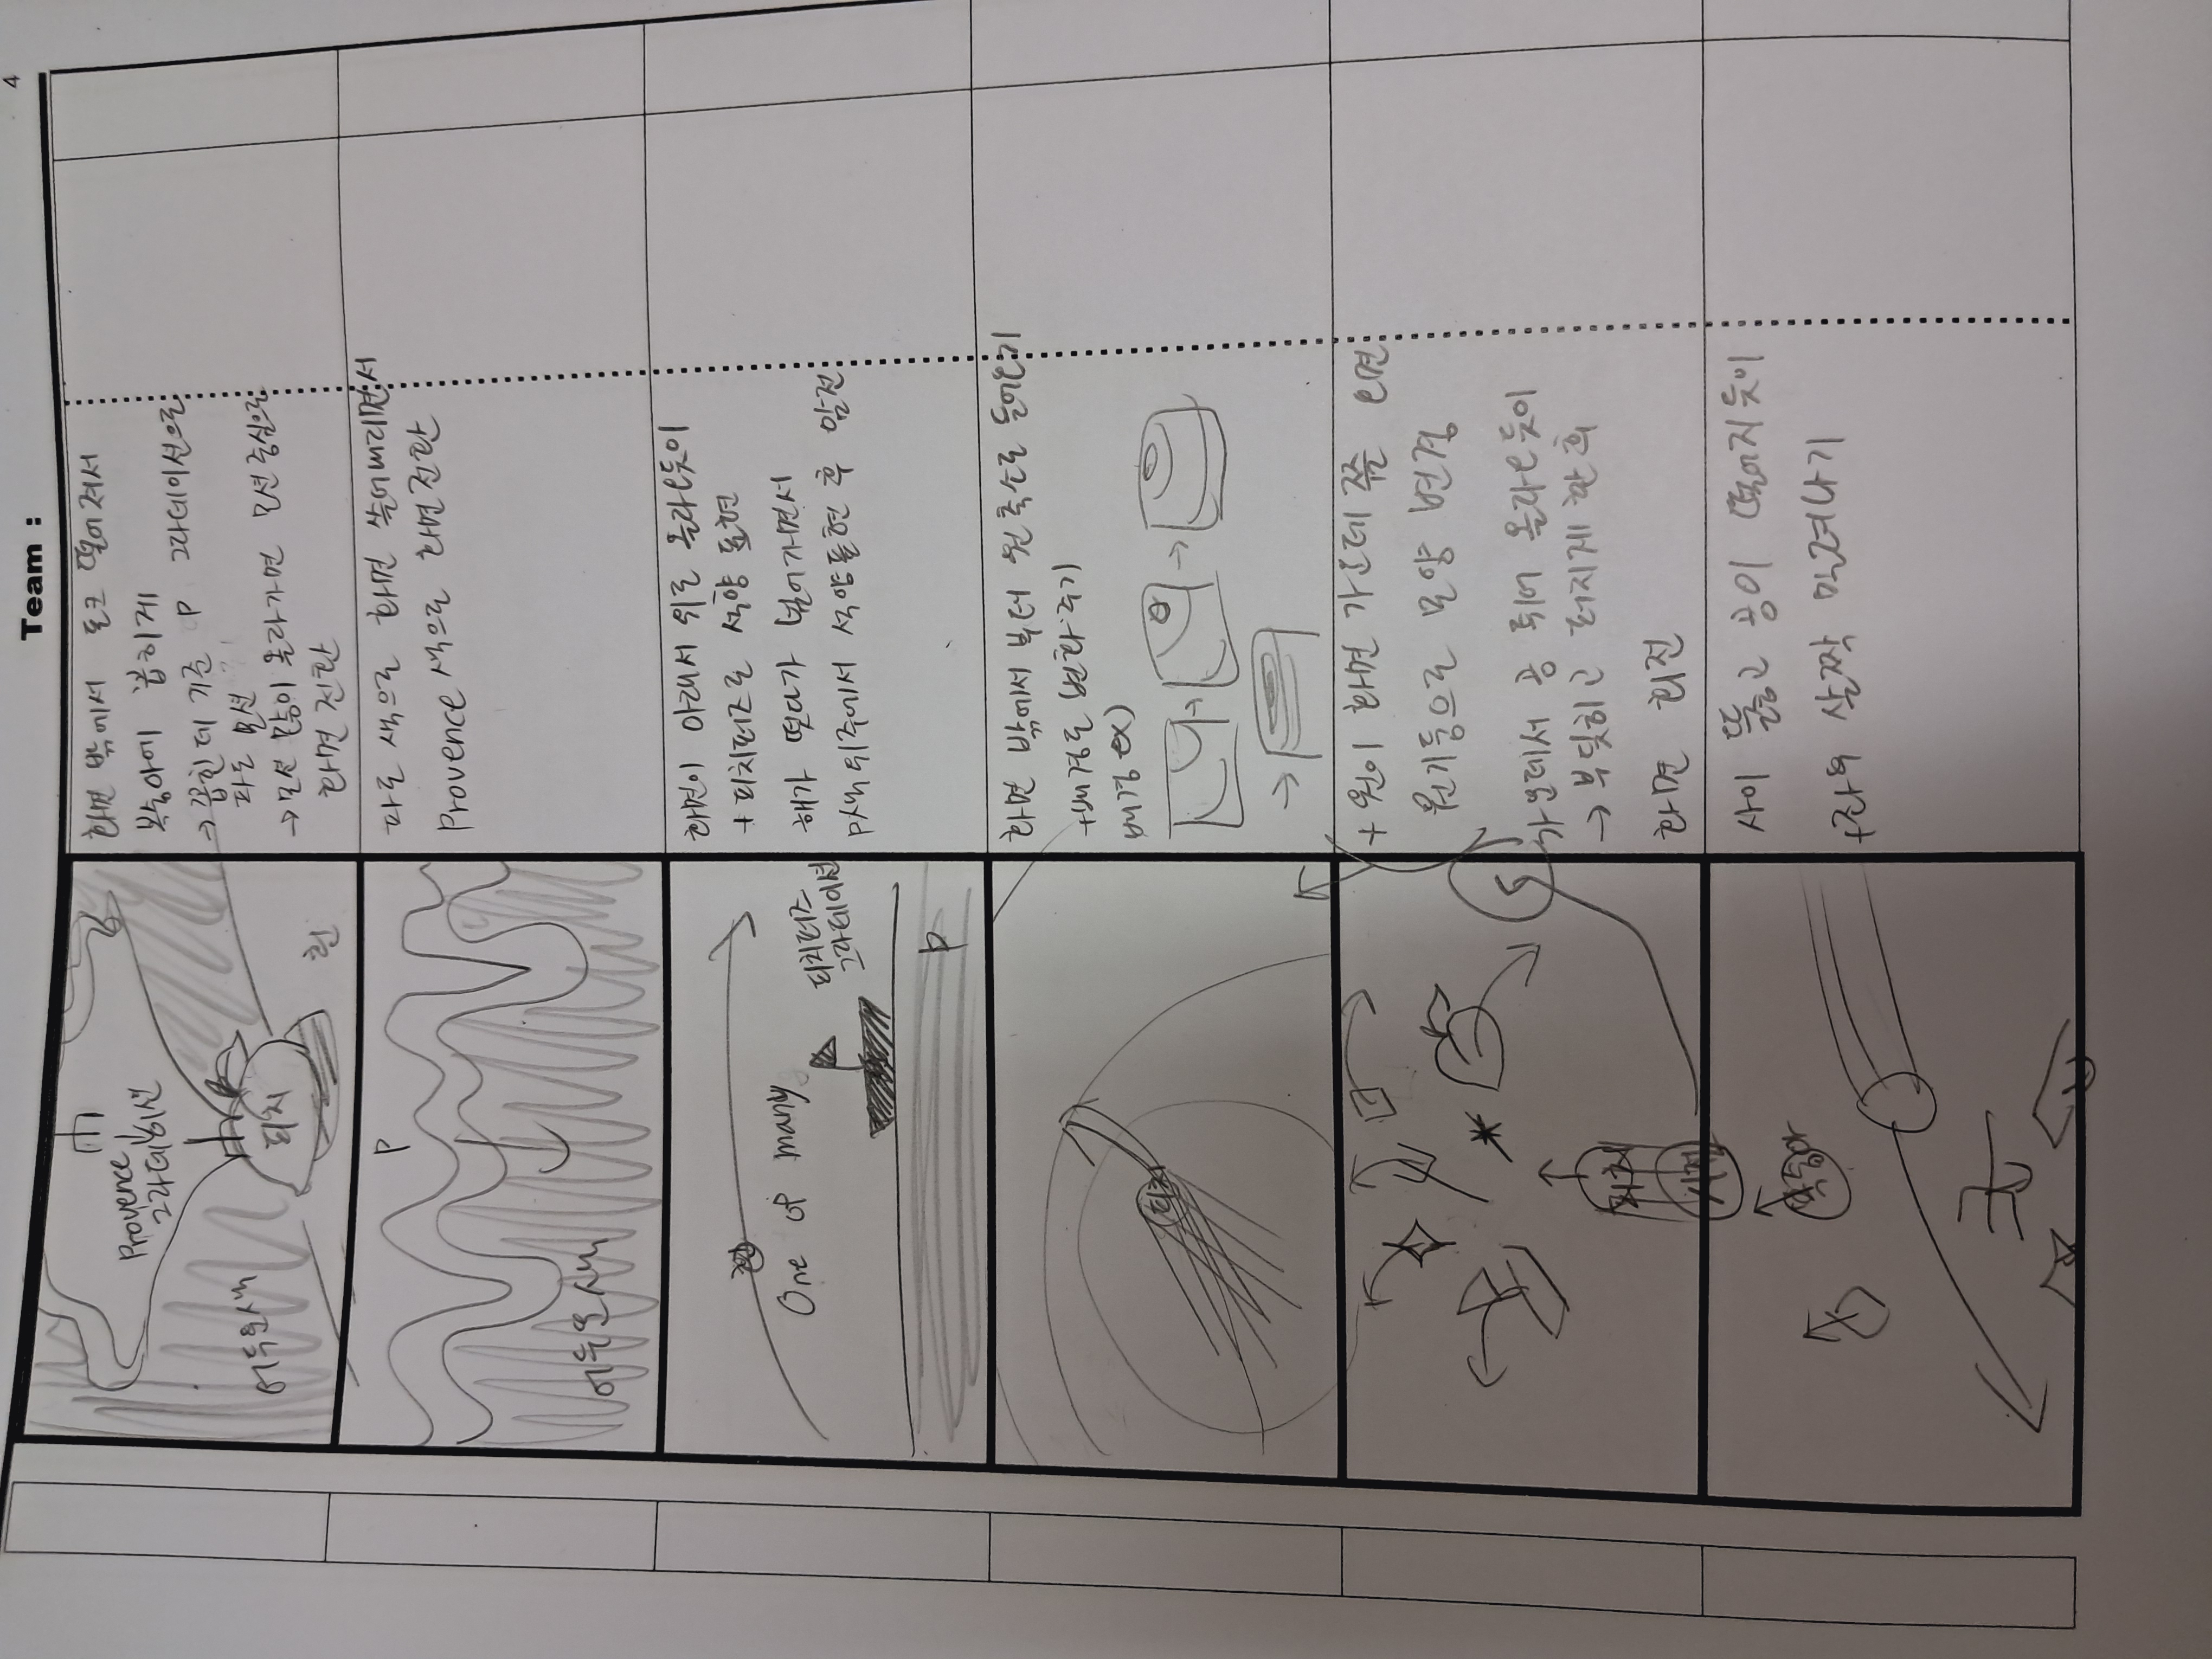 4
Team :
Provence
그라데이션
어두운색
피치
흰
화면 밖에서 포크 떨어져서
복숭아에 꼽히게
→ 꼽힌데 기준 P 그라데이션으로
파도 모션
→ 모션 많이 올라가면 모션 중심으로
화면 전환
P
어두운색
파도 색으로 화면 쓸어버리면서
Provence 색으로 화면전환
One of many
피치퍼즈
그라데이션
P
화면이 아래서 위로 올라오듯이
+ 피치퍼즈로 석양 표현
해가 떴다가 넘어가면서
P색 위주에서 석양표현 후 암전
피치
화면 밖에서 부터 원 축소로 들어오기
+배경도 변화주기
배경 ex)
피치
시점
+ 원이 화면 가운데 쯤 오면
원기둥으로 모양 변경
가운데서 공 튀어 올라오듯이
→ 부딪히고 터지게 한 후
화면 회전
복숭아
사이 뚫고 공이 떨어지듯이
+좌우 살짝 밀려나기